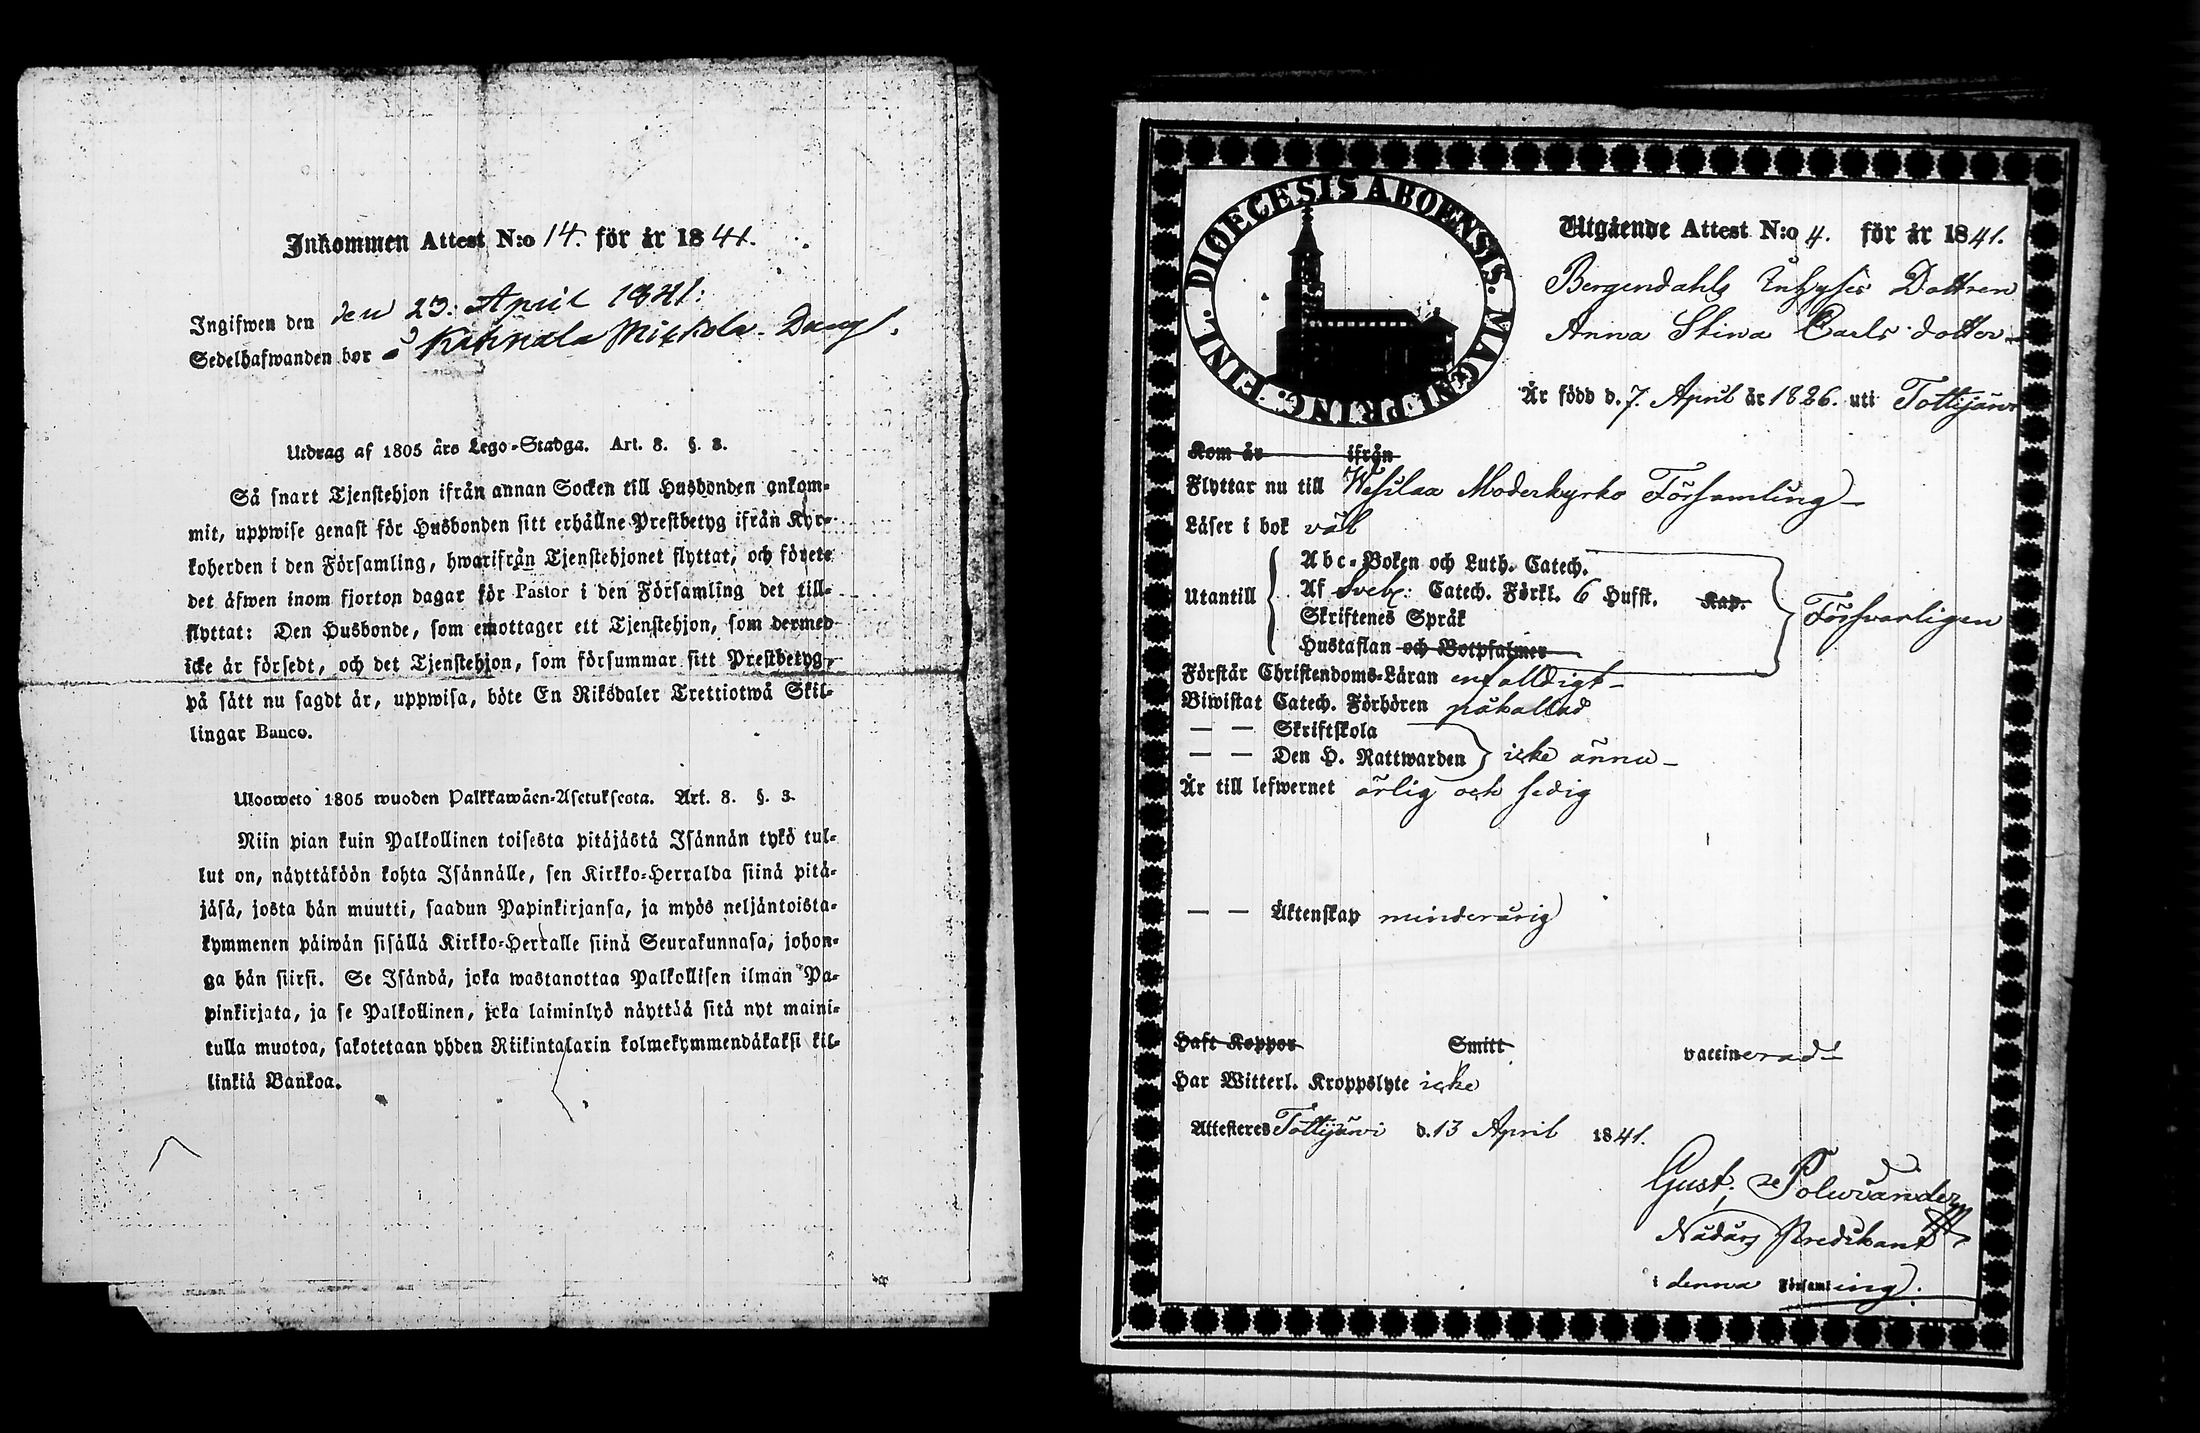 Inkommen Attest N:o 14. för år 1841.
Ingifwen den den 23. April 1841:
Sedelhafwanden bor å
Utdrag af 1805 års Lego-Stadga. Art. 8. §. 3.
Så snart Tjenstehjon ifrån annan Socken till Husbonden ankom-
mit, uppwise genast för Husbonden sitt erhållne Prestbetyg ifrån Kyr-
koherden i den Församling, hwarifrån Tjenstehjonet flyttat, och förete
det äfwen inom fjorton dagar för Pastor i den Församling det till-
flyttat: Den Husbonde, som emottager ett Tjenstehjon, som dermed
icke är försedt, och det Tjenstehjon, som försummar sitt Prestbetyg,
på sätt nu sagdt är, uppwisa, böte En Riksdaler Trettiotwå Skil-
lingar Banco.
Uloosweto 1805 wuoden Palkkawäen-Asetuksesta. Art. 8. §. 3.
Niin pian kuin Palkollinen toisesta pitäjästä Isännän tykö tul-
lut on, näyttäköön kohta Isännälle, sen Kirkko-Herralda siinä pitä-
jäsä, josta hän muutti, saadun Papinkirjansa, ja myös neljäntoista-
kymmenen päiwän sisällä Kirkko-Herralle siinä Seurakunnasa, johon-
ga hän siirsi. Se Isändä, joka wastanottaa Palkollisen ilman Pa-
pinkirjata, ja se Palkollinen, joka laiminlyö näyttää sitä nyt maini-
tulla muotoa, sakotetaan yhden Riikintalarin kolmekymmendäkaksi kil-
linkiä Bankoa.
DIOECESIS ABOENSIS. MAGNI PRING. FINL.
Utgående Attest N:o 4. för år 1841.
Bergendahls Dottren
Anna Stina Carls dotter
Är född d. 7. April år 1826. uti Tottijärvi
Kom år ifrån
Flyttar nu till Wesilax Moderkyrko Församling
Läser i bok väl
Utantill
Abc-Boken och Luth. Catech.
Af Sveb: Catech. Förkl. 6 Hufst. Kap.
Skriftenes Språk
Hustaflan och Botpsalmer
Försvarligen
Förstår Christendoms-Läran enfalldigt
Biwistat Catech. Förhören påkallad
— — Skriftskola
— — Den H. Nattwarden icke ännu
Är till lefwernet ärlig och sedig
— — Äktenskap minderårig
Haft Koppor Smitt vaccinerad
Har Witterl. Kroppslyte icke
Attesteres Tottijärvi d. 13 April 1841.
Gust.
Nådårs Predikant
i denna Församling.